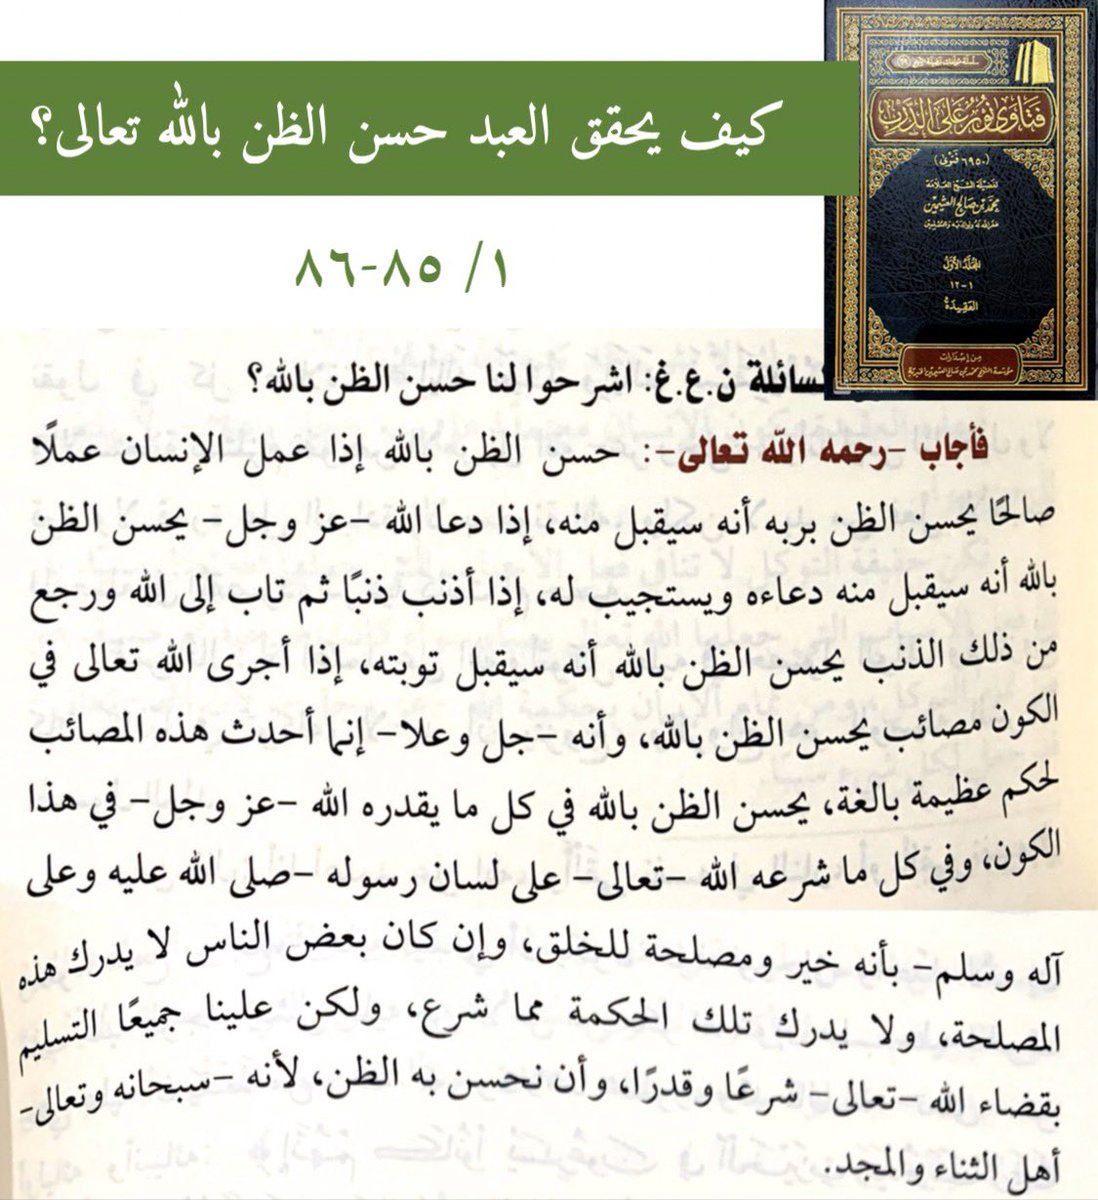 كيف يحقق العبد حسن الظن بالله تعالى؟
١/ ٨٥-٨٦
فتاوى نور على الدرب
(٦٩٥٠ فتوى)
لفضيلة الشيخ العلامة
محمد بن صالح العثيمين
غفر الله له ولوالديه وللمسلمين
المجلد الأول
١-١٢
العقيدة
من إصدارات
مؤسسة الشيخ محمد بن صالح العثيمين الخيرية
السائلة ن.ع.غ: اشرحوا لنا حسن الظن بالله؟
فأجاب -رحمه الله تعالى-: حسن الظن بالله إذا عمل الإنسان عملًا
صالحًا يحسن الظن بربه أنه سيقبل منه، إذا دعا الله -عز وجل- يحسن الظن
بالله أنه سيقبل منه دعاءه ويستجيب له، إذا أذنب ذنبًا ثم تاب إلى الله ورجع
من ذلك الذنب يحسن الظن بالله أنه سيقبل توبته، إذا أجرى الله تعالى في
الكون مصائب يحسن الظن بالله، وأنه -جل وعلا- إنما أحدث هذه المصائب
لحكم عظيمة بالغة، يحسن الظن بالله في كل ما يقدره الله -عز وجل- في هذا
الكون، وفي كل ما شرعه الله -تعالى- على لسان رسوله -صلى الله عليه وعلى
آله وسلم- بأنه خير ومصلحة للخلق، وإن كان بعض الناس لا يدرك هذه
المصلحة، ولا يدرك تلك الحكمة مما شرع، ولكن علينا جميعًا التسليم
بقضاء الله -تعالى- شرعًا وقدرًا، وأن نحسن به الظن، لأنه -سبحانه وتعالى-
أهل الثناء والمجد.